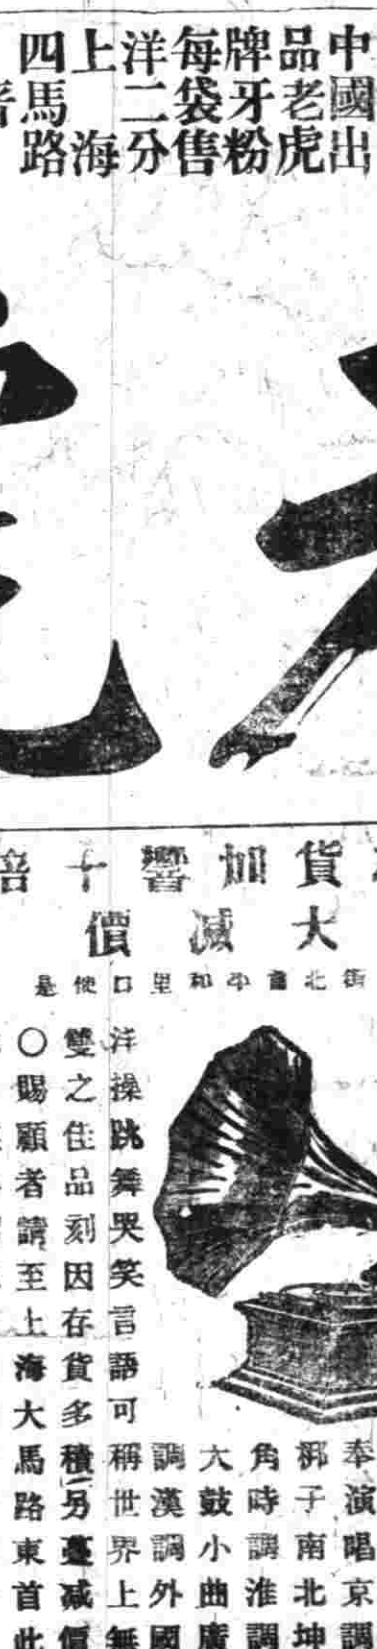 中國出
品老虎
牌牙粉
每袋售
洋二分
上海
四馬路
貨加響十倍
大減價
街北首平和里口便是
奉演唱京調
梆子南北坤
角時調淮調
大鼓小曲廣
調漢調外國
洋操跳舞哭笑言語可稱世界上無
雙之佳品刻因存貨多積另躉减價
〇賜顧者請至上海大馬路東首此